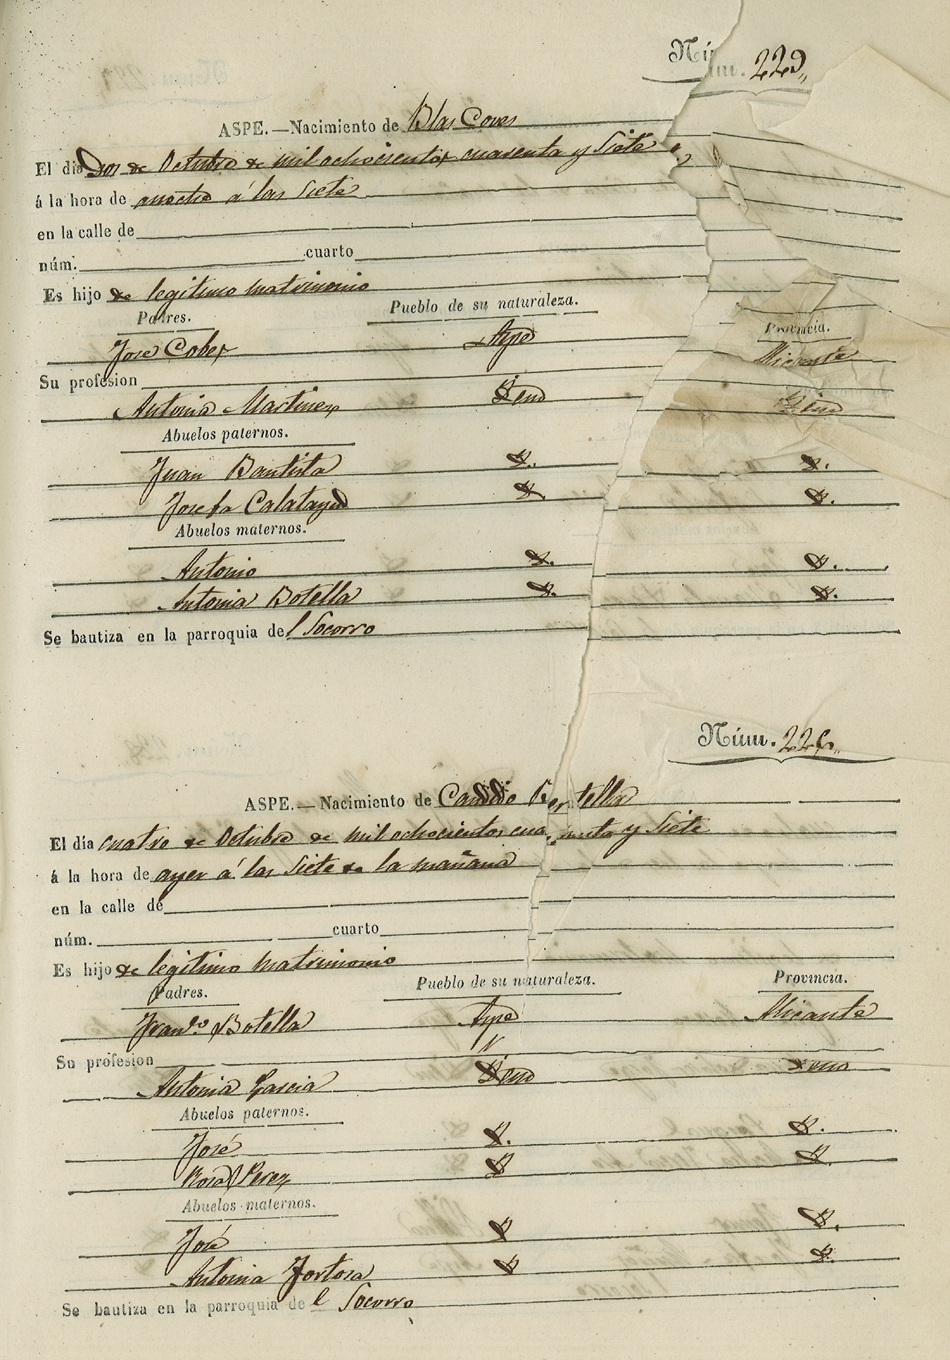 Núm. 229.
ASPE.—Nacimiento de Blas Coves
El dia Dos de Octubre de mil ochocientos cuarenta y Siete
á la hora de anoche á las Siete
en la calle de
núm. cuarto
Es hijo de legitimo matrimonio
Padres. Pueblo de su naturaleza. Provincia.
José Cobes Aspe Alicante
Su profesion
Antonia Martinez Idem Idem
Abuelos paternos.
Juan Bautista Y. Y.
Josefa Calatayud Y. Y.
Abuelos maternos.
Antonio Y. Y.
Antonia Botella Y. Y.
Se bautiza en la parroquia del Socorro
Núm.
ASPE.—Nacimiento de Candido Botella
El día cuatro de Octubre de mil ochocientos cuarenta y Siete
á la hora de ayer á las Siete de la mañana
en la calle de
núm. cuarto
Es hijo de legitimo matrimonio
Padres. Pueblo de su naturaleza. Provincia.
Franco. Botella Aspe Alicante
Su profesion
Antonia Garcia Idem Idem
Abuelos paternos.
José Y. Y.
Rosa Perez Y Y.
Abuelos maternos.
José Y Y.
Antonia Tortosa Y Y.
Se bautiza en la parroquia de el Socorro